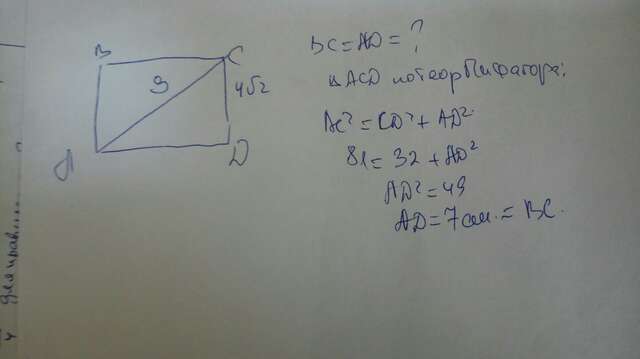 B C
9
4√2
A D
BC = AD = ?
△ACD по теор Пифагора:
AC² = CD² + AD²
81 = 32 + AD²
AD² = 49
AD = 7см. = BC.